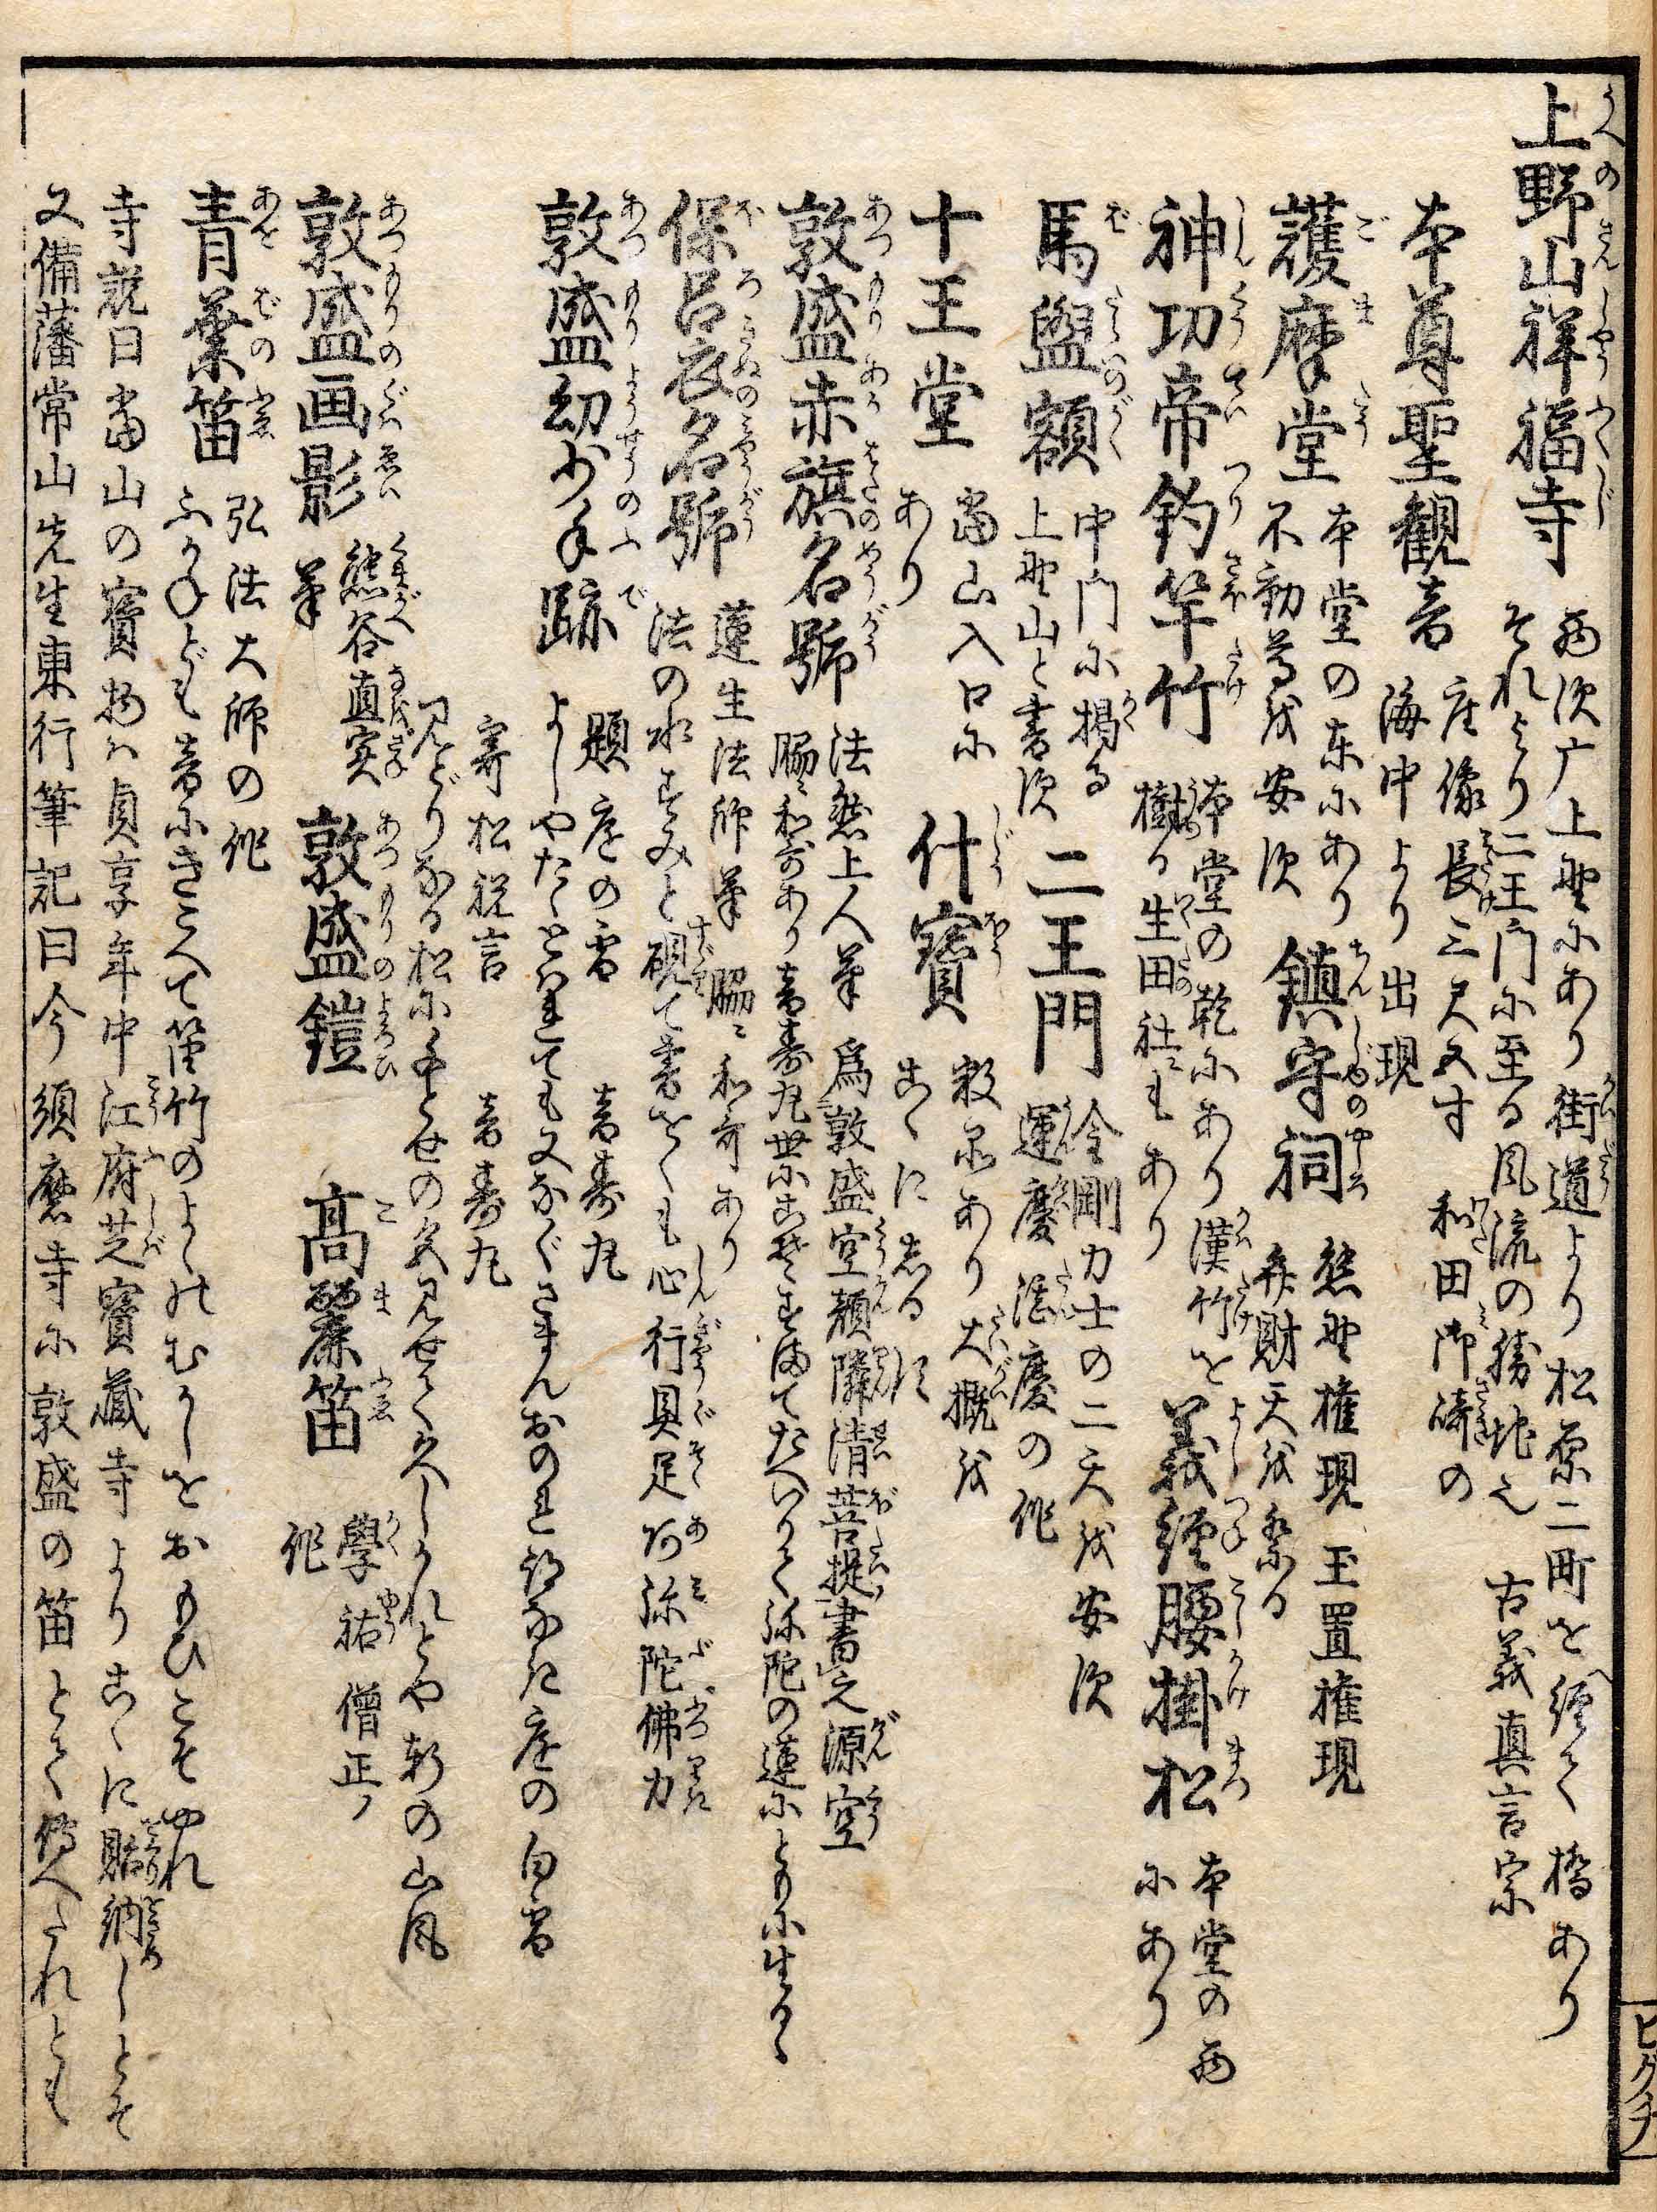 上野山祥福寺
西須广上野にあり街道より松原二町を経て橋あり
それより二王門に至る風流の勝地也 古義真言宗
本尊聖観音
座像長三尺五寸 和田御崎の
海中より出現
護摩堂
本堂の東にあり
不動尊を安ず
鎮守祠
熊野権現 玉置権現
弁財天を祭る
神功帝釣竿竹
本堂の乾にあり漢竹を
樹る生田社にもあり
義経腰掛松
本堂の西
にあり
馬盥額
中門に掲る
上野山と書す
二王門
金剛力士の二天を安ず
運慶 湛慶の作
十王堂
当山入口に
あり
什寳
数品あり大概を
こゝにしるす
敦盛赤旗名號
法然上人筆 為敦盛空顔隣清菩提書之源空
脇ニ和哥あり
保呂衣名號
蓮生法師筆 脇ニ和哥あり 心行具足阿弥陀佛力
法の水
敦盛幼少手跡
題 庭の雪 音寿丸
よしやたゝとはれても又なぐさまんおのれ
庭の白雪
寄松祝言 音寿丸
敦盛画影
熊谷直実
筆
敦盛鎧
髙麗笛
學祐僧正ノ
作
青葉笛
弘法大師の作
ふかねども音にきこへて笛竹のよゝのむかしをおもひこそやれ
寺説曰當山の寳物ハ貞享年中江府芝寳蔵寺よりこゝに贈納しとそ
又備藩常山先生東行筆記曰今須磨寺に敦盛の笛とて傳へたれとも
ヒグチ